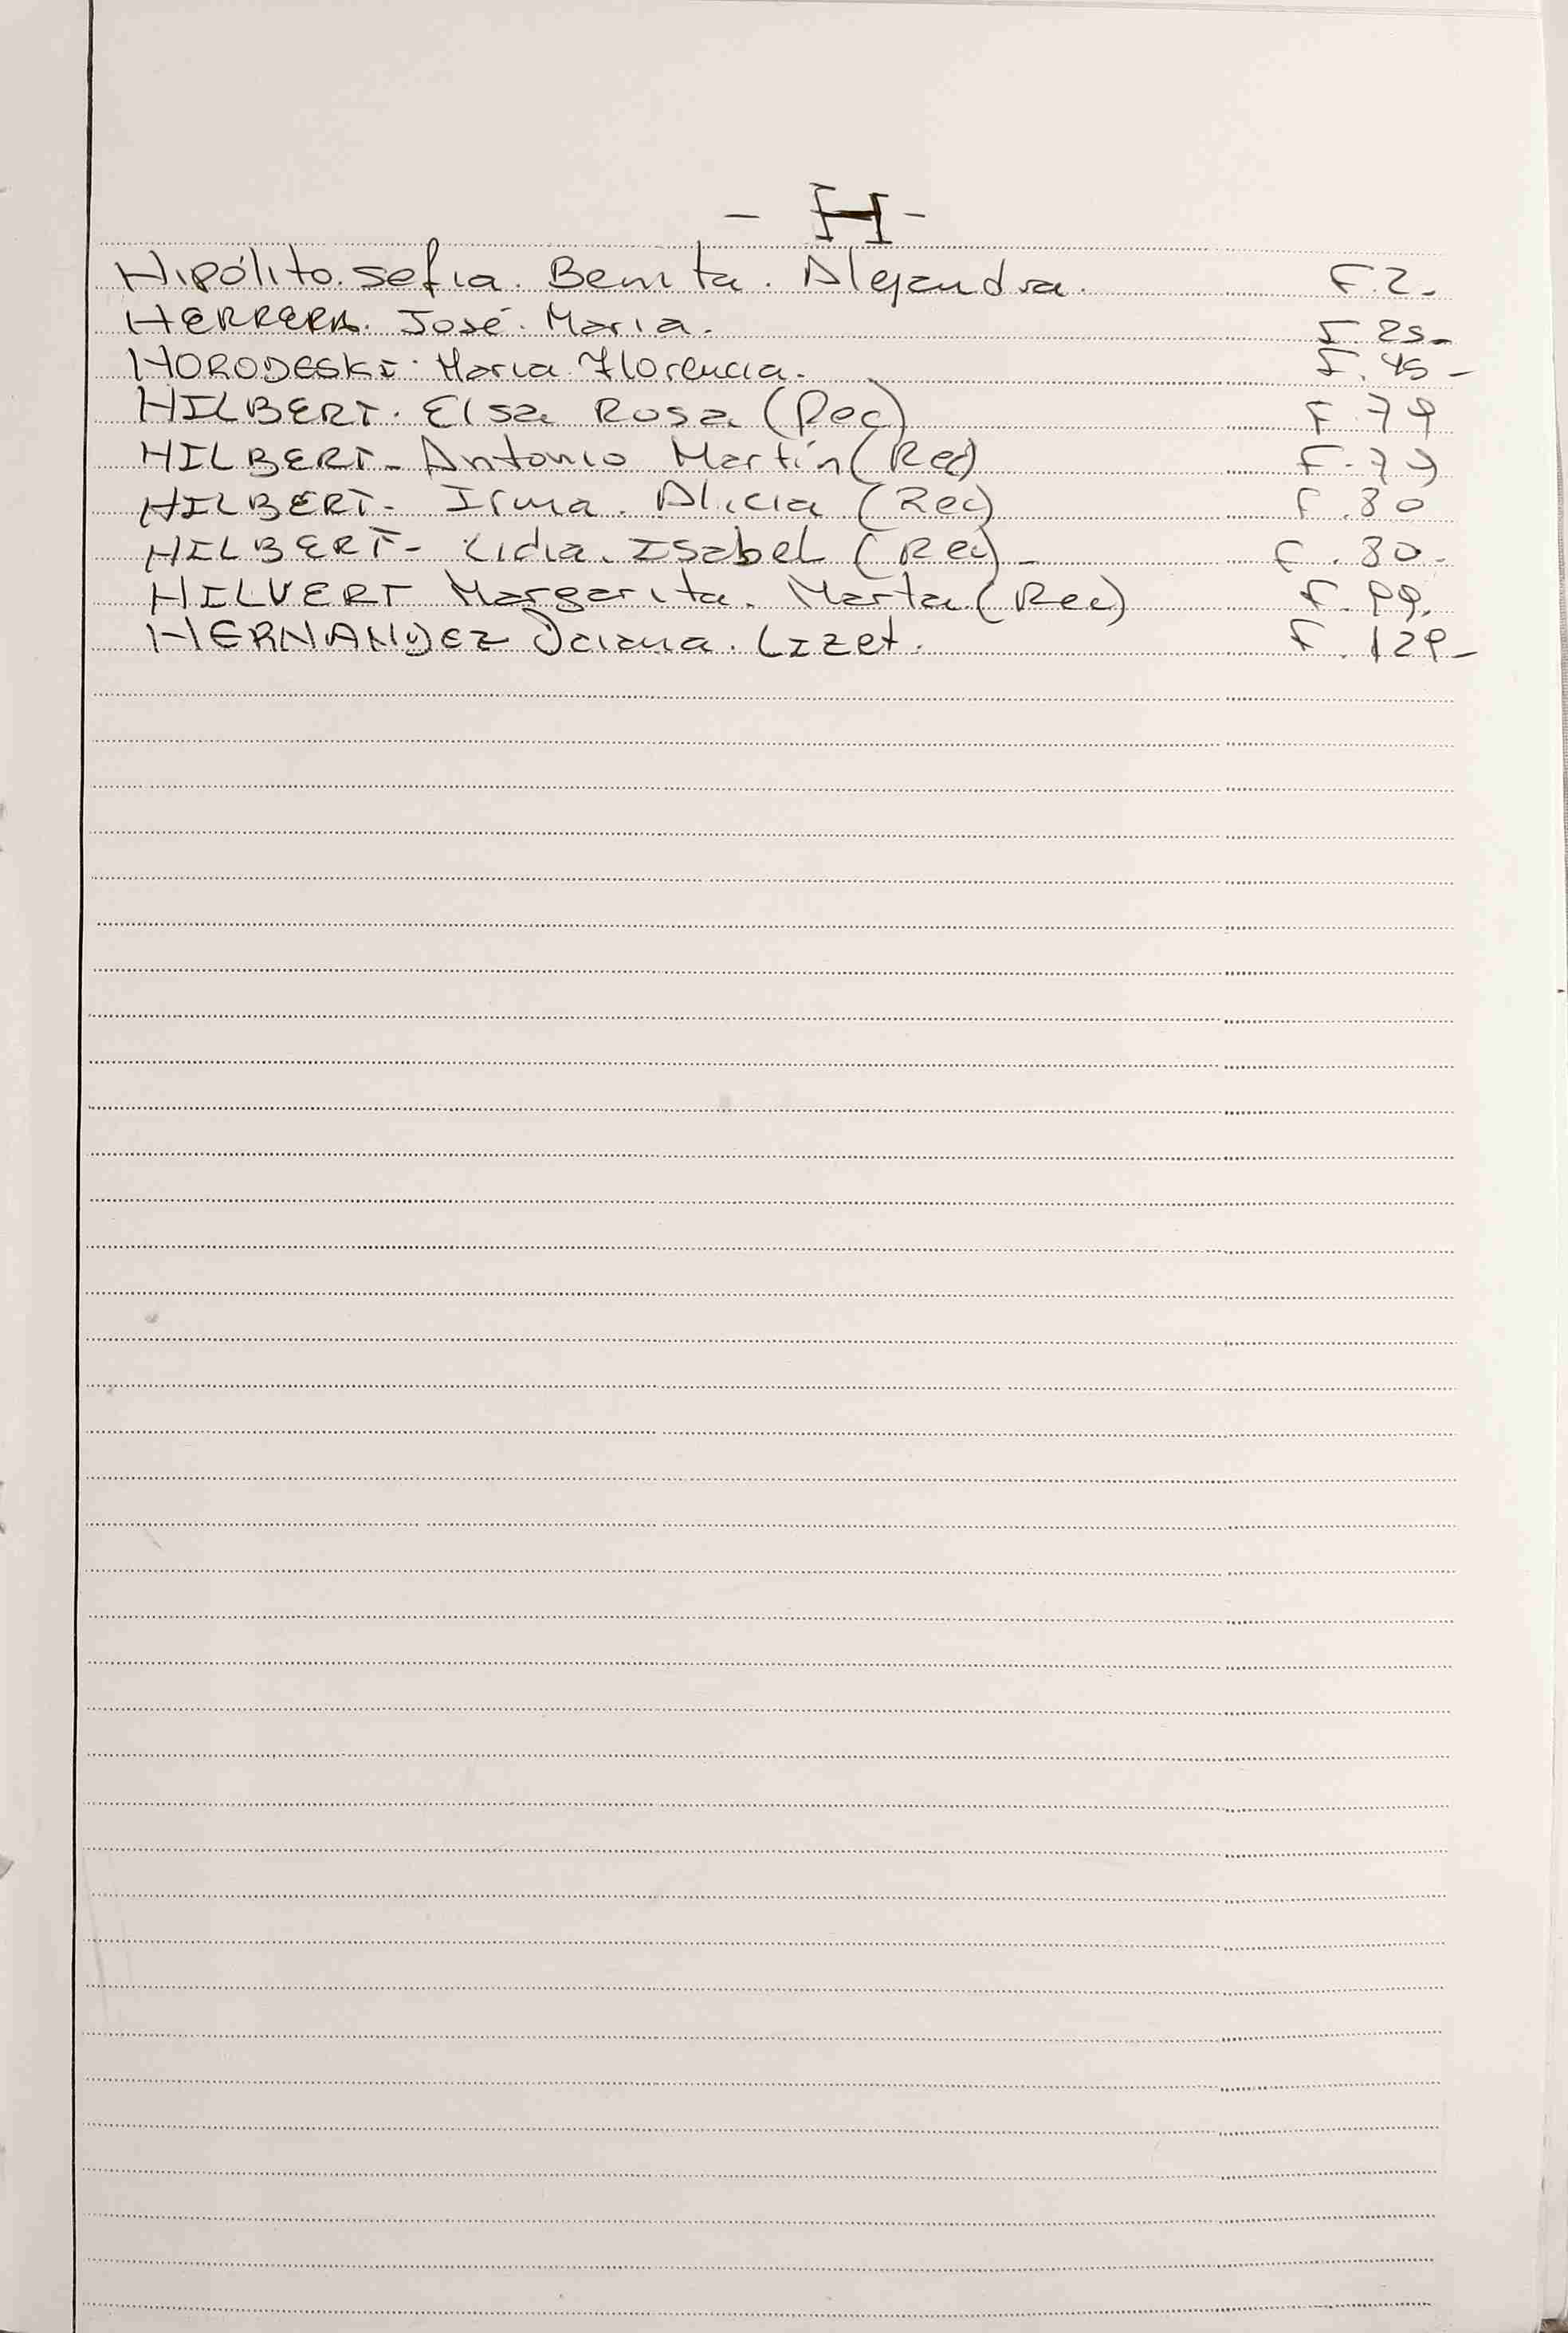 - H -
Hipólito. Sofia. Benita. Alejandra. F.2.
HERRERA. José. Maria. F. 25-
HORODESKI. Maria Florencia. F. 45-
HILBERT. Elsa Rosa (Rec) F. 79
HILBERT- Antonio Martín (Rec) F. 79
HILBERT- Irma. Alicia (Rec) F. 80
HILBERT- Lidia. Isabel (Rec)- F. 80-
HILVERT Margarita. Marta (Rec) F. 99.
HERNANDEZ Daiana. Lizet. F. 129-